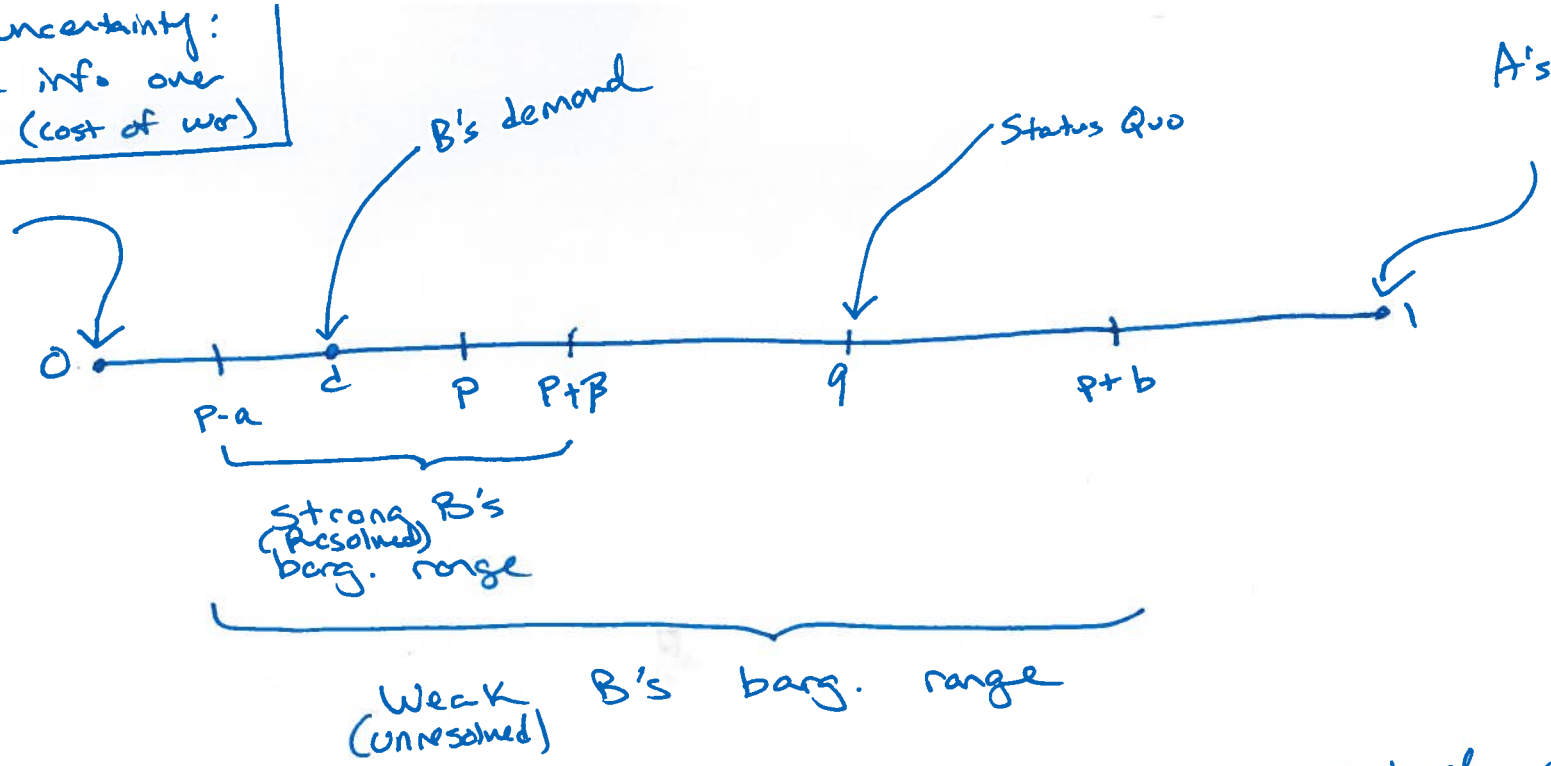 uncertainty:
info over
(cost of war)
B's demand
Status Quo
A's
0
p-a
d
p
p+β
q
p+b
1
Strong B's
(Resolved)
barg. range
Weak B's barg. range
(unresolved)